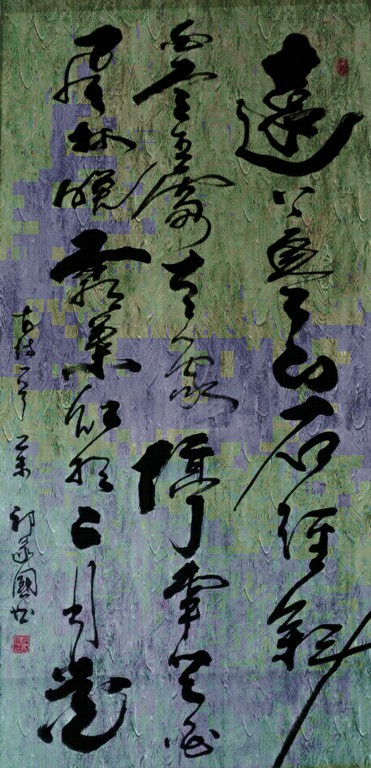 遠上寒山石徑斜
白雲生處有人家停車坐愛
楓林晚霜葉紅於二月花
古詩一首 國書